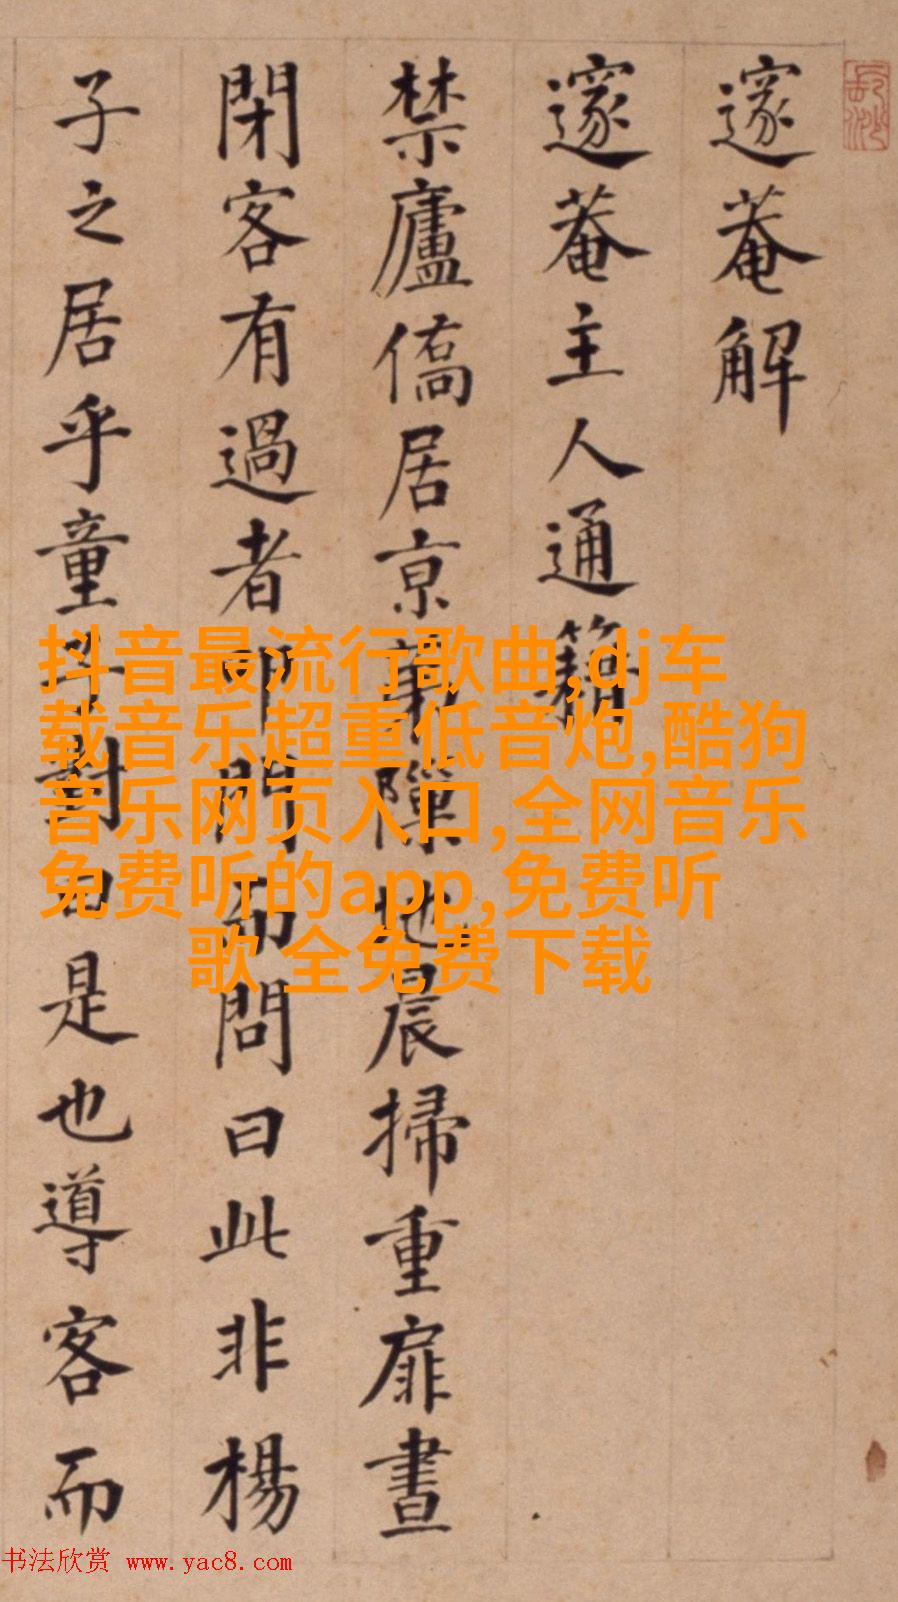 邃菴解
邃菴主人通籍
禁廬僑居京隟地晨掃重扉晝
閉客有過者門而問曰此非楊
子之居乎童子對曰是也導客而
抖音最流行歌曲,dj车
载音乐超重低音炮,酷狗
音乐网页入口,全网音乐
免费听的app,免费听
歌 全免费下载
书法欣赏 www.yac8.com